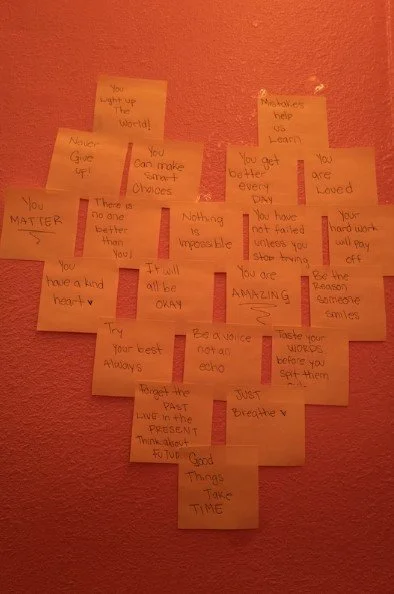 You
Light up
The
World!
Mistakes
help
us
Learn
Never
Give
up!
You
Can make
smart
Choices
You get
better
every
DAY
You
are
Loved
You
MATTER
There is
no one
better
than
You!
Nothing
is
Impossible
You have
not failed
unless you
stop trying
Your
hard work
will pay
off
You
have a kind
heart ♥
It will
all be
OKAY
You are
AMAZING
Be the
Reason
someone
smiles
Try
your best
Always
Be a voice
not an
echo
Taste your
WORDS
before you
spit them
Forget the
PAST
LIVE in the
PRESENT
Think about
JUST
Breathe ♥
Good
Things
Take
TIME